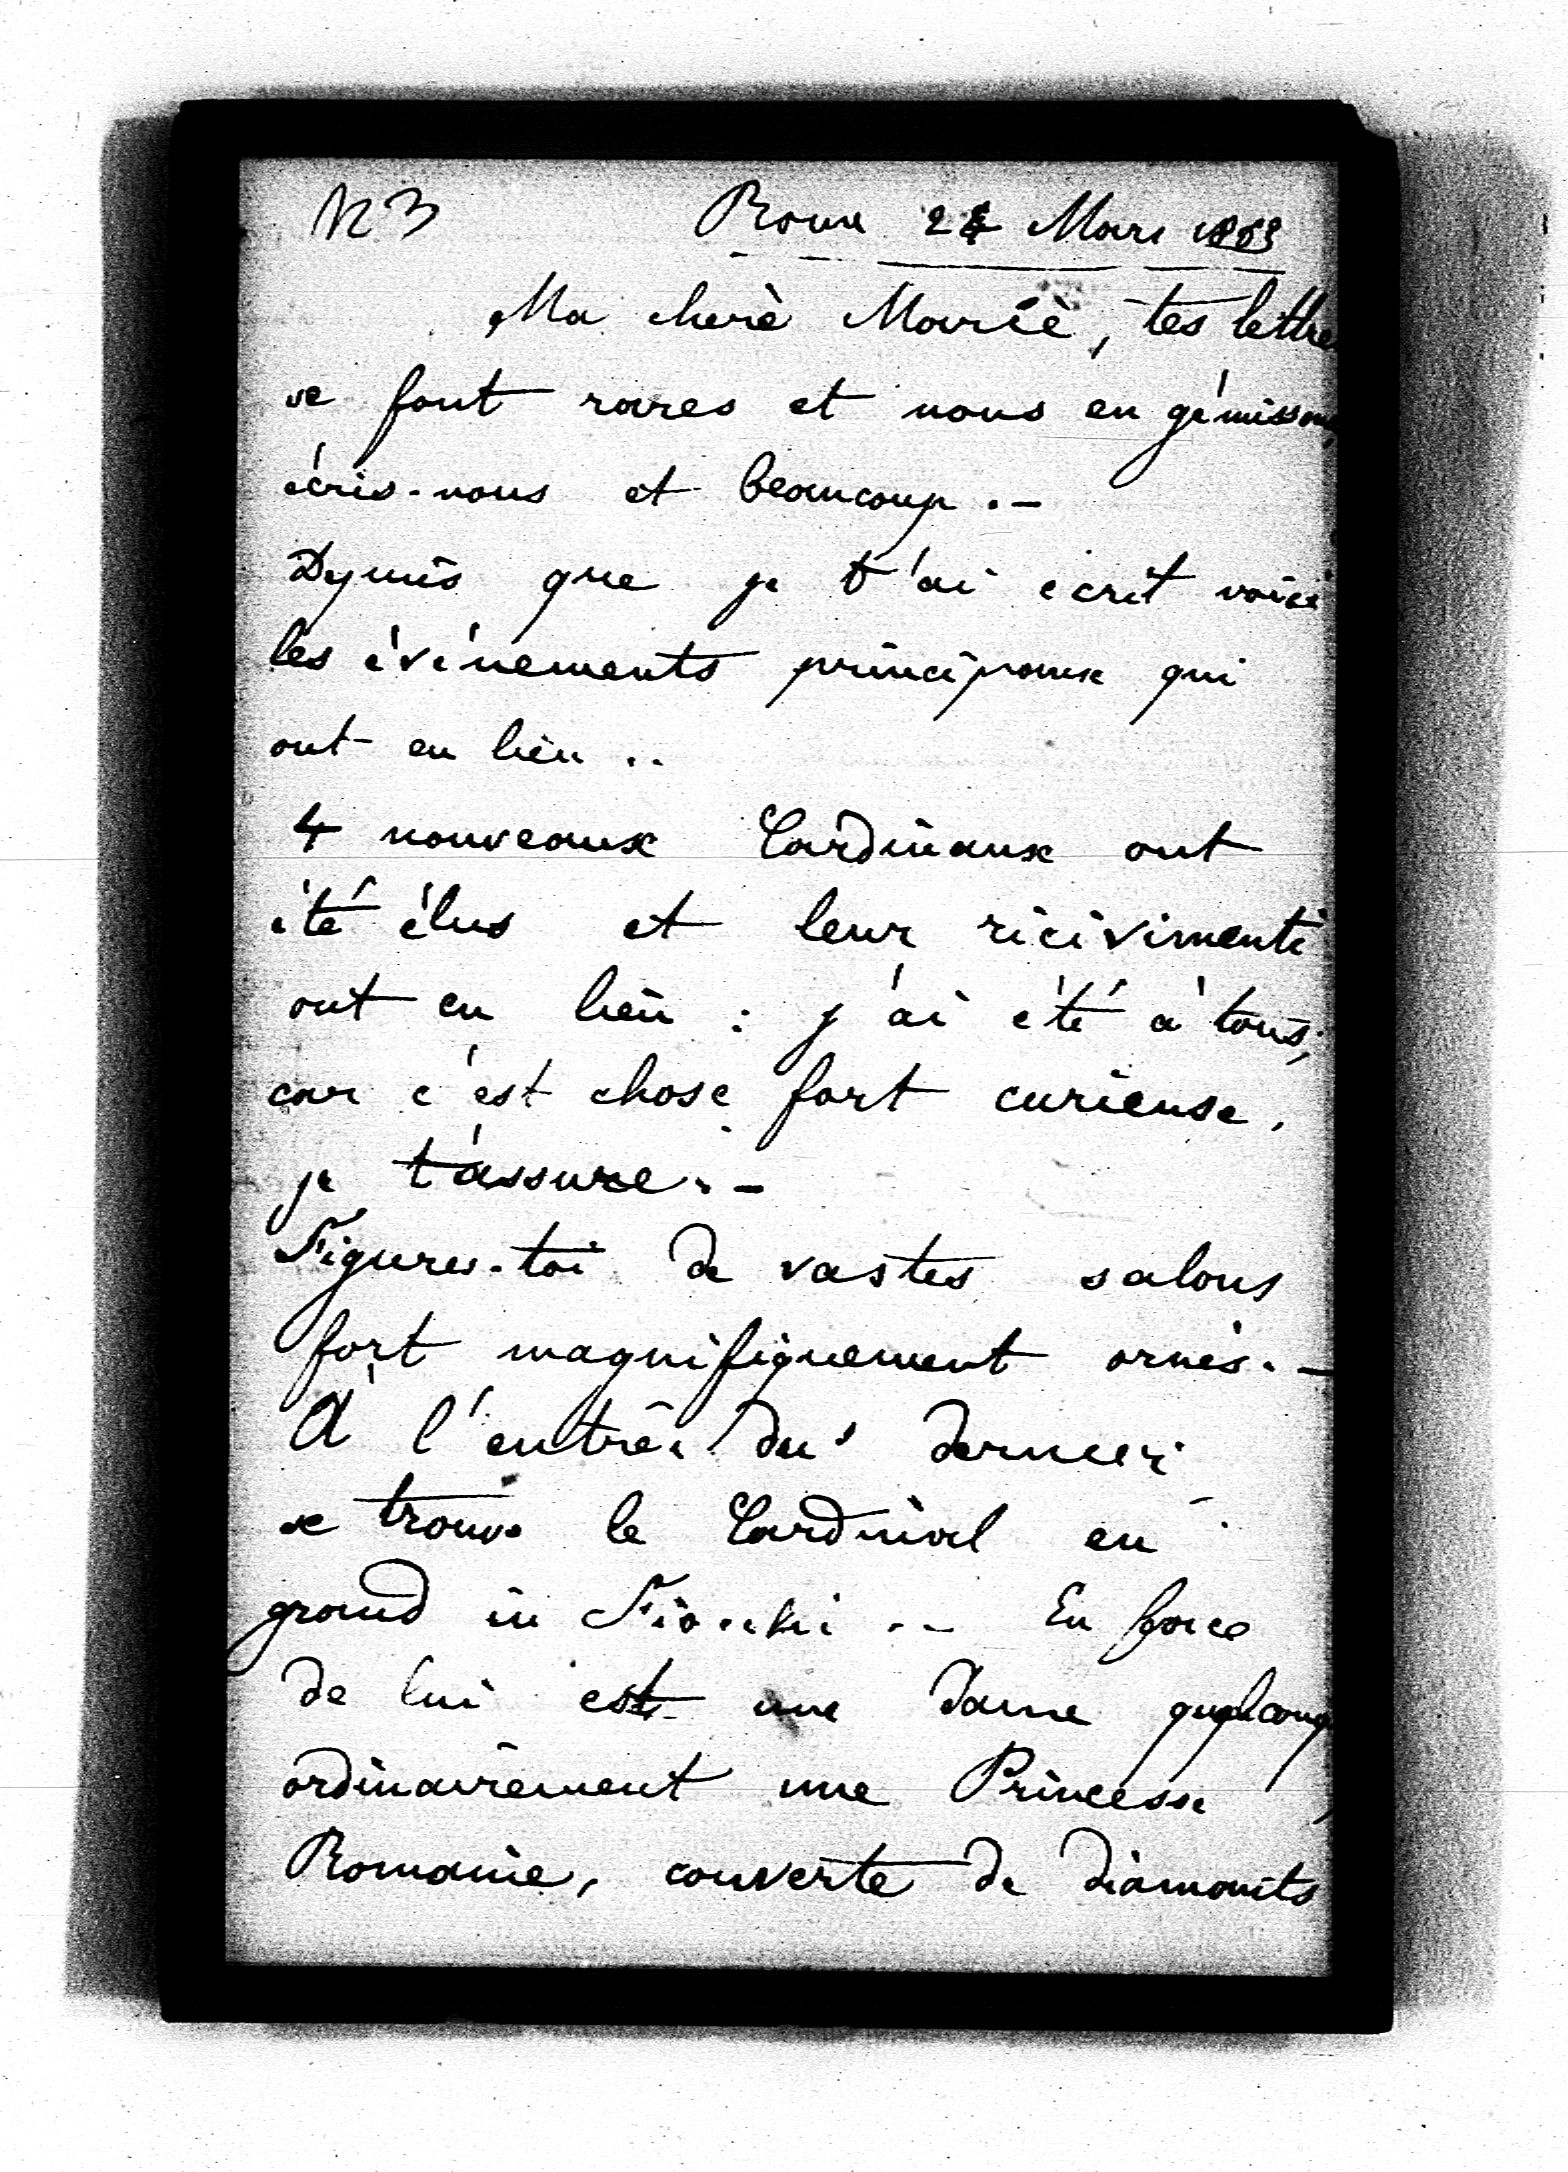 N 3 Rome 24 Mars 1863
Ma chère Marie, tes lettres
se font rares et nous en gémissons,
écris-nous et beaucoup.-
Depuis que je t'ai écrit voici
les événements principaux qui
ont eu lieu..
4 nouveaux Cardinaux ont
été élus et leur ricivimenti
ont eu lieu : j'ai été à tous,
car c'est chose fort curieuse,
je t'assure.-
Figures-toi de vastes salons
fort magnifiquement ornés.-
À l'entrée du dernier
se trouve le Cardinal en
grand in Fiocchi .- En face
de lui est une Dame
ordinairement une Princesse
Romaine, couverte de diamants